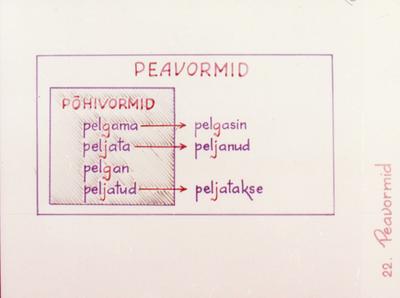 PEAVORMID
PÕHIVORMID
pelgama → pelgasin
peljata → peljanud
pelgan
peljatud → peljatakse
22. Peavormid